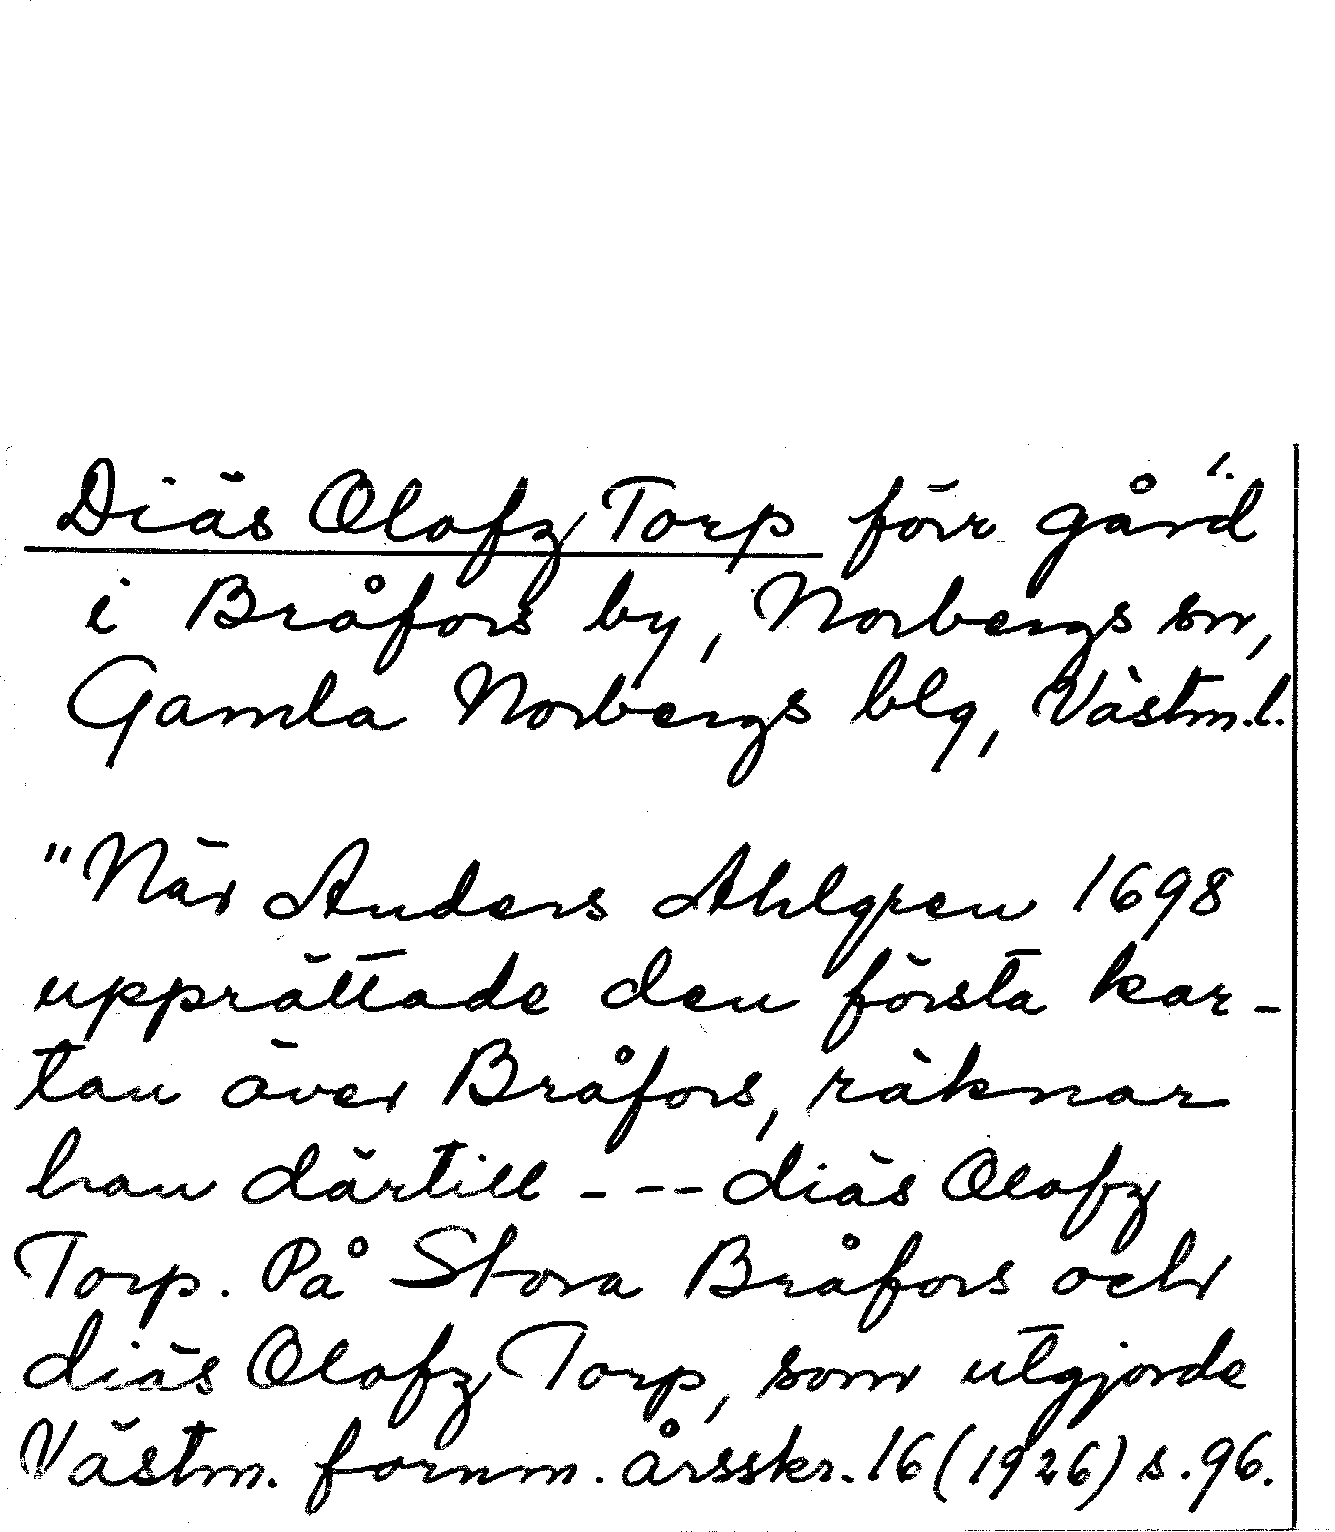 Diäs Olofz Torp förr gård
i Bråfors by, Norbergs sn,
Gamla Norbergs blg, Västm.l.
"När Anders Ahlgren 1698
upprättade den första kar-
tan över Bråfors, räknar
han därtill - -- diäs Olofz
Torp. På Stora Bråfors och
diäs Olofz Torp, som utgjorde
Västm. fornm. årsskr. 16 (1926) s. 96.